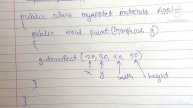 public class myapplet extends Applet
{
public void paint (Graphics g)
{
g.drawRect (20, 30, 60, 50)
x y width height
}
}